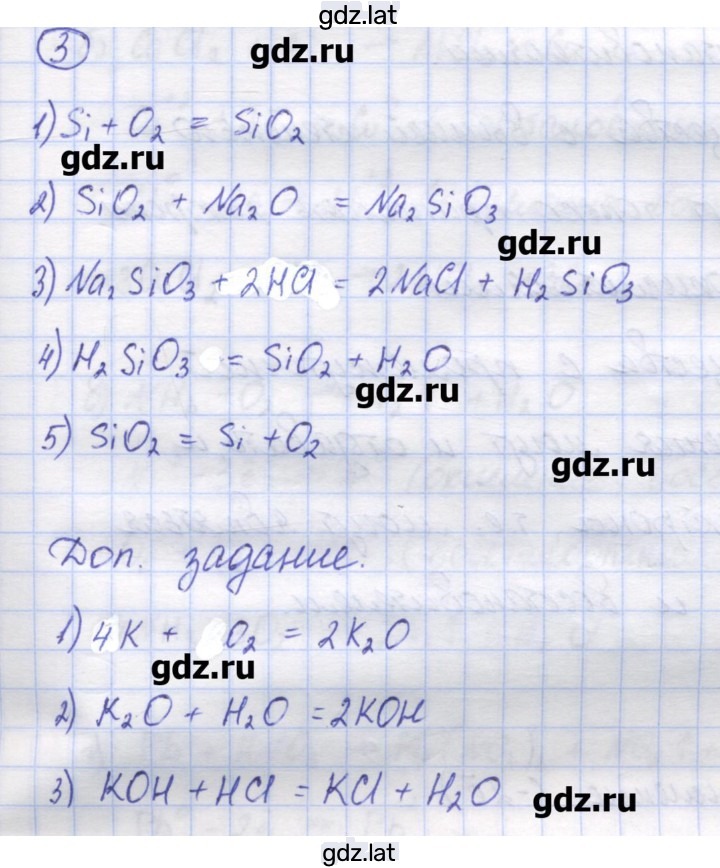 gdz.lat
3
gdz.ru
1) Si + O₂ = SiO₂
gdz.ru
2) SiO₂ + Na₂O = Na₂SiO₃
gdz.ru
3) Na₂SiO₃ + 2HCl = 2NaCl + H₂SiO₃
4) H₂SiO₃ = SiO₂ + H₂O
gdz.ru
5) SiO₂ = Si + O₂
gdz.ru
Доп. задание.
1) 4K + O₂ = 2K₂O
gdz.ru
2) K₂O + H₂O = 2KOH
3) KOH + HCl = KCl + H₂O
gdz.ru
gdz.lat